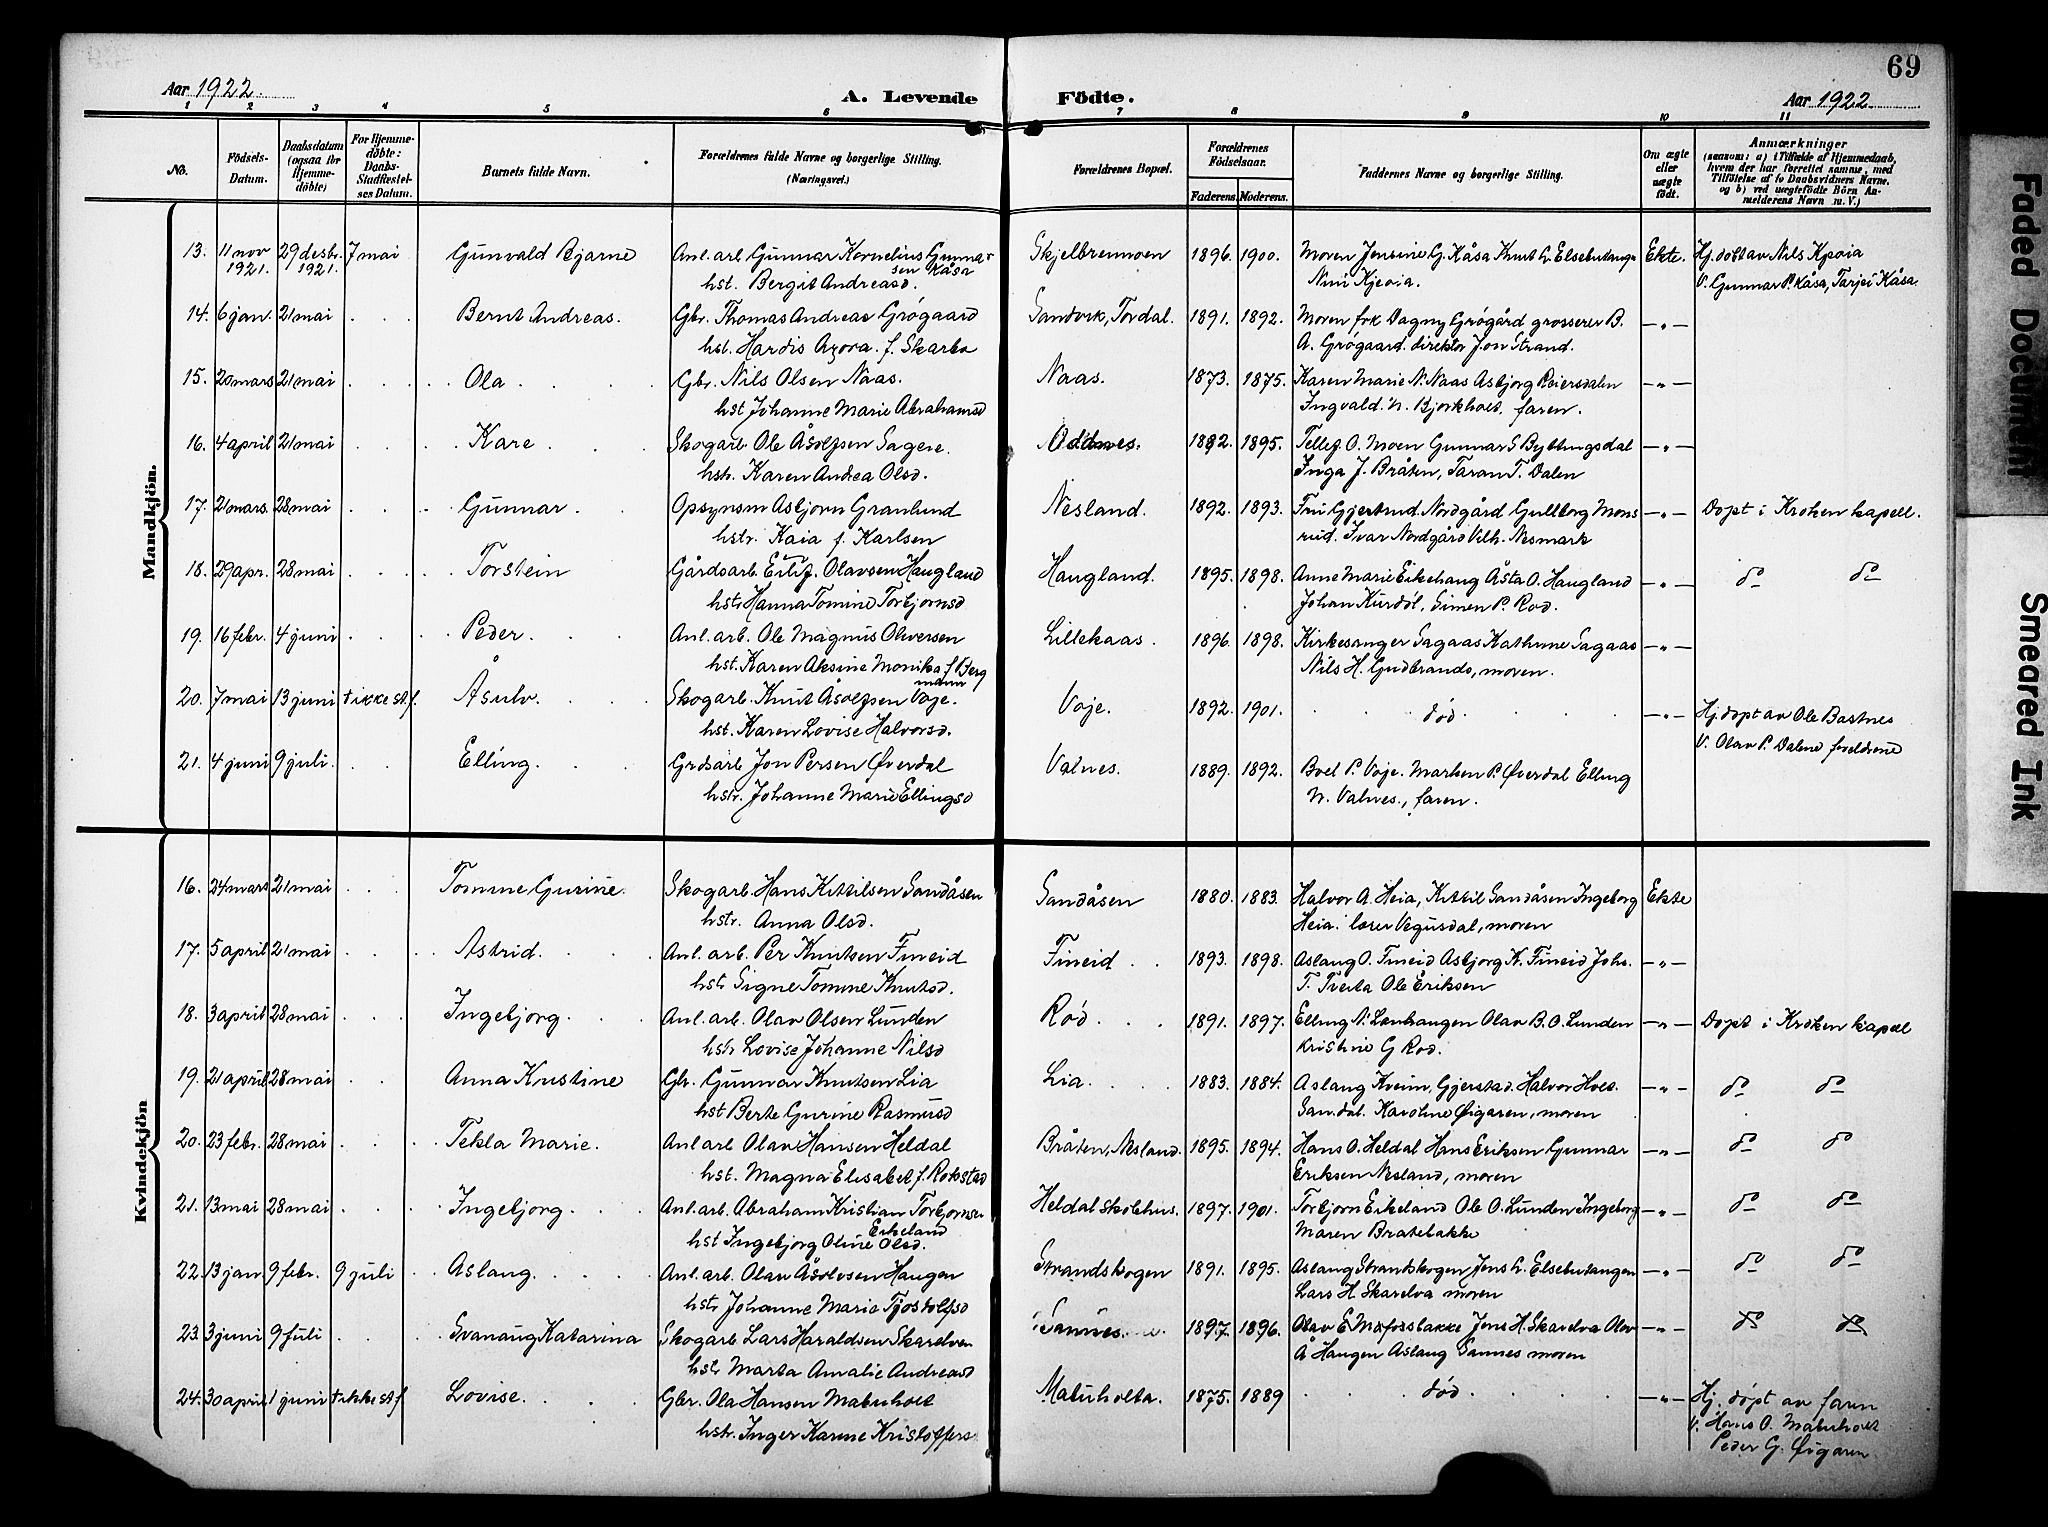 69
Aar 1922.
A. Levende
Födte.
Aar 1922
1 2 3 4 5 6 7 8 9 10 11
No.
Födsels-Datum.
Daabsdatum (ogsaa for Hjemme-döbte)
For Hjemme-döbte: Daabs-Stadfæstel-ses Datum.
Barnets fulde Navn.
Forældrenes fulde Navne og borgerlige Stilling. (Næringsvei.)
Forældrenes Bopæl.
Forældrenes Födselsaar.
Faderens. Moderens.
Faddernes Navne og borgerlige Stilling.
Om ægte eller uægte födt.
Anmærkninger (saasom: a) i Tilfælde af Hjemmedaab, hvem der har forrettet samme, med Tilföielse af to Daabsvidners Navne, og b) ved uægtefödte Börn Anmelderens Navn m. V.)
Mandkjön.
13. 11 nov 1921. 29 desbr. 1921. 7 mai Gunvald Bjarne Anl. arb. Gunnar Kornelius Gunnarsen Kåsa Skjelbremoen 1896. 1900. Moren Jensine G. Kåsa Knut L. Elsebutange Ekte. Hj. døbt av Nils
hst. Bergit Andreasd. V. Gunnar P. Kåsa, Tarjei Kåsa
14. 6 jan. 21 mai Bernt Andreas. Gbr. Thomas Andreas Grøgaard Sandvik, Tørdal. 1891. 1892. Moren frk Dagny Grøgård grosserer B. — „ —
hst. Hardis f. Skarbo A. Grøgaard. direktør Jon Strand.
15. 20 mars 21 mai Ola Gbr. Nils Olsen Naas. Naas. 1873. 1875. Karen Marie N. Naas Asbjørg Reiersdalen — „ —
hst Johanne Marie Abrahamsd Ingvald N. Bjorkholt. faren.
16. 4 april 21 mai Kare Skogarb Ole Åsolfsen Sagene. Oddnes. 1882. 1895. Tellef O. Moen Gunnar S — „ —
hstr. Karen Andrea Olsd. Inga J. Bråten, Taran T. Dalen
17. 21 mars. 28 mai Gunnar Opsynsm Asbjørn Granlund Nesland. 1892. 1893. Fru Gjertrud Nordgård Gullborg Mons — „ — Døpt i Kroken kapell.
hstr. Kaia f. Karlsen rud. Ivar Nordgård Vilh. Nesmark
18. 29 apr. 28 mai Torstein Gårdsarb. Eilif Olavsen Haugland Haugland. 1895. 1898. Anne Marie Eikehaug Åsta O. Haugland — „ — do do
hstr Hanna Tomine Torbjørnsd Johan Kurdøl, Simen P. Rød.
19. 16 febr. 4 juni Peder. Anl. arb. Ole Magnus Oliversen Lillekaas. 1896. 1898. Kirkesanger Sagaas Kathrine Sagaas — „ —
hst. Karen Aksine Monika f Bergmann Nils H. Gudbrands, moren.
20. 7 mai 13 juni † ikke st.f. Åsulv. Skogarb. Knut Åsolfsen Voje. Voje. 1892. 1901. død. — „ — Hj. døpt av Ole Bastnes
hst. Karen Lovise Halvorsd. V. Olav P. Dalene foreldrene
21. 4 juni 9 juli. Elling. Grdsarb. Jon Persen Øverdal Valnes. 1889. 1892. Boel P. Voje. Marken P. Øverdal Elling
hstr. Johanne Marie Ellingsd N. Valnes., faren.
Kvindekjön
16. 24 mars 21 mai Tomine Gurine. Skogarb. Hans Kittilsen Sandåsen Sandåsen 1880. 1883. Halvor A. Heia, Kittil Sandåsen Ingeborg Ekte
hstr. Anna Olsd. Heia. lærer Vegusdal, moren
17. 5 april 21 mai Astrid. Anl. arb. Per Knutsen Fineid Fineid 1893. 1898. Aslaug O. Fineid Asbjørg K. Fineid Johs. — „ —
hstr Signe Tomine Knutsd. T. Tveita Ole Eriksen
18. 3 april 28 mai Ingebjorg. Anl. arb. Olav Olsen Lunden Rød. 1891. 1897. Elling N. Lønhaugen Olav B. O. Lunden — „ — Døpt i Kroken kapell
hstr Lovise Johanne Nilsd Kristine G Rød.
19. 21 april 28 mai Anna Kristine Gbr. Gunnar Knutsen Lia Lia. 1883. 1884. Aslaug Kveim, Gjerstad. Halvor Hves — „ — do do
hst Berte Gurine Rasmusd Sandal. Karoline Øigaren, moren
20. 23 febr. 28 mai Tekla Marie. Anl arb Olav Hansen Heldal Bråten, Nesland. 1895. 1894. Hans O. Heldal Hans Eriksen Gunnar — „ — do do
hst. Magna Elisabet f. Rokstad Eriksen Nesland, moren
21. 13 mai 28 mai Ingebjorg Anl. arb. Abraham Kristian Torbjornsen Eikeland Heldal Skolehus. 1897. 1901. Torbjorn Eikeland Ole O. Lunden Ingeborg — „ — do do
hst Ingebjorg Oline Olsd. Maren Bratebakke
22. 13 jan. 9 febr. 9 juli Aslaug. Anl. arb. Olav Åsolvsen Haugen Strandskogen 1891. 1895. Aslaug Strandskogen Jens L. Elsebutangen — „ — do do
hstr Johanne Marie Tjostolfsd Lars H Skarelva moren
23. 3 juni 9 juli Svanaug Katarina Skogarb Lars Haraldsen Skarelven Sannes 1897. 1896. Olav E Møfossbakke Jens H. Skarelva Olav — „ — do do
hstr Marta Amalie Andreasd Å Haugen Aslaug Sannes moren
24. 30 april 1 juni † ikke st f Lovise. Gbr. Ola Hansen Matuholt Matuholta. 1875. 1889 død. — „ — Hj. døpt av faren
hstr. Inger Karine Kristoffers V. Hans O. Matuholt
Peder G. Øigaren
Faded Document
Smeared Ink